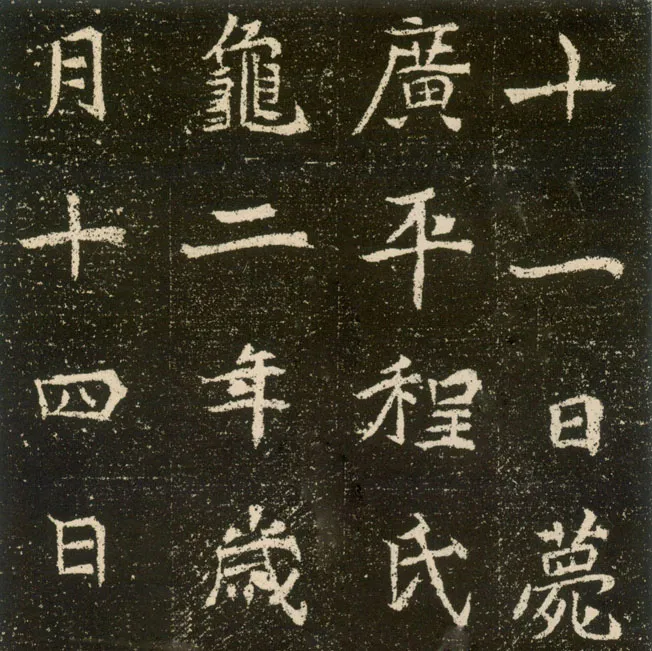 十一日薨
廣平程氏
龜二年歲
月十四日